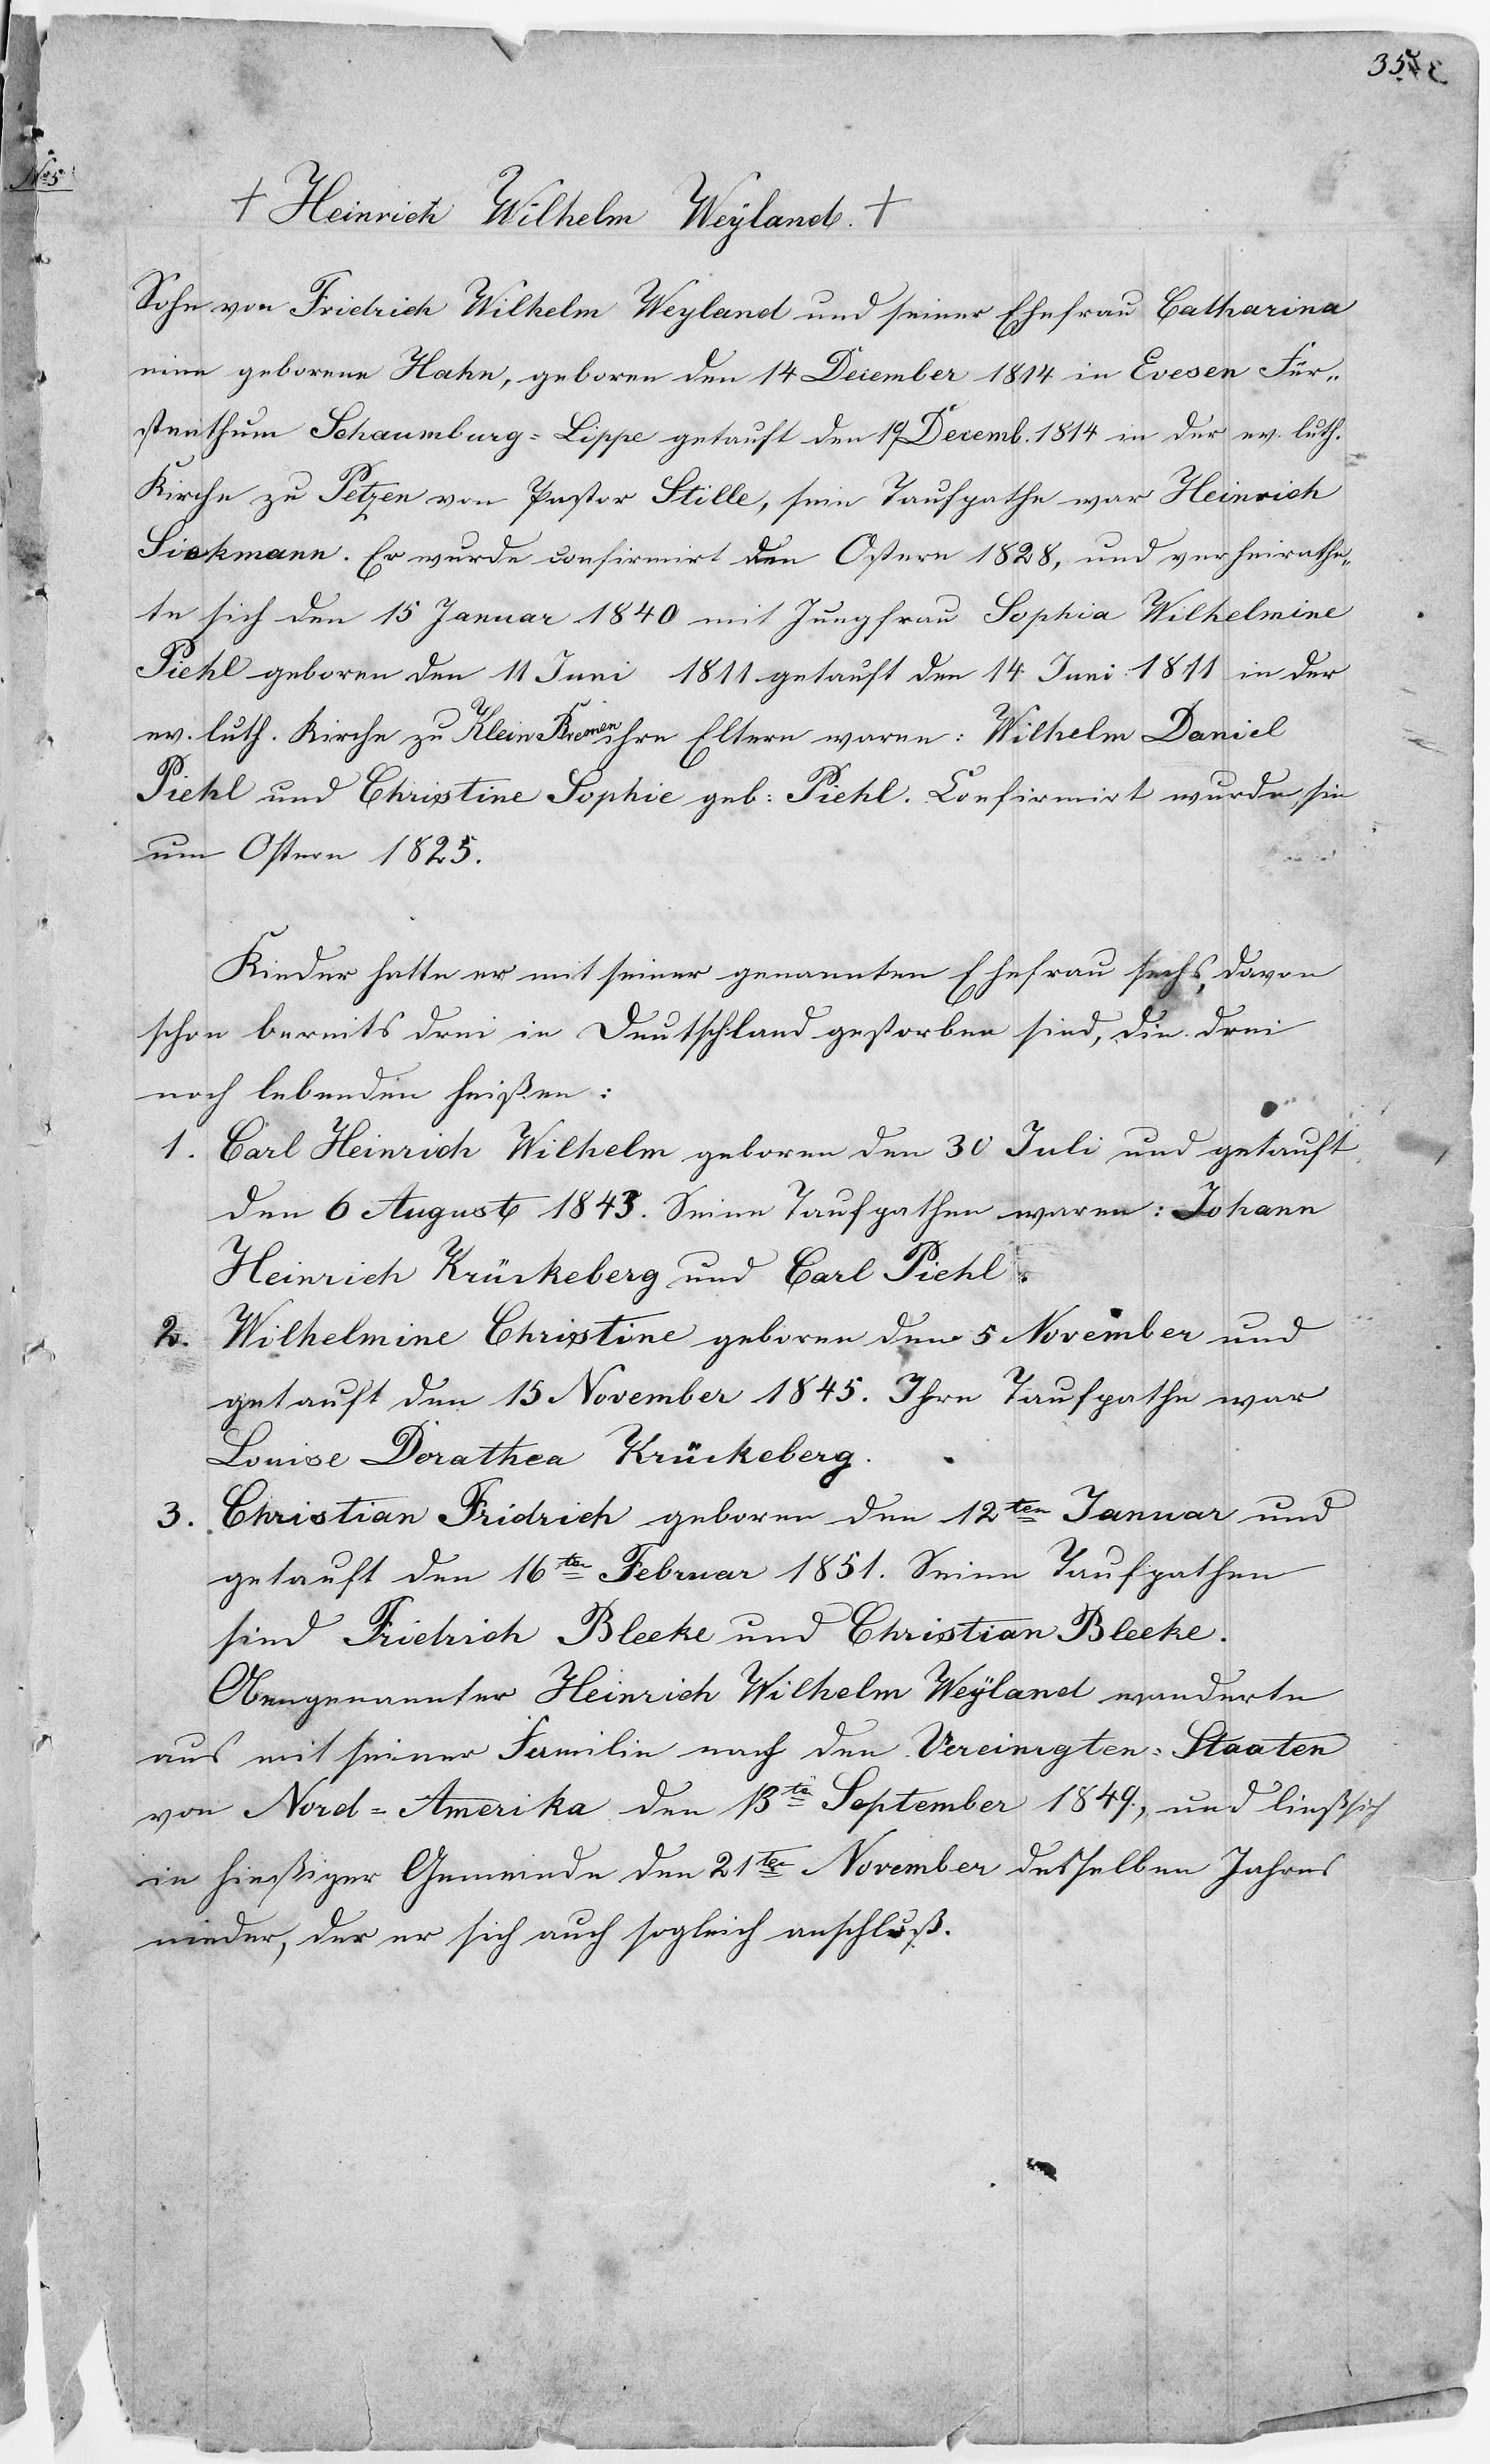 35
No 5
† Heinrich Wilhelm Weÿland. †
Sohn von Fridrich Wilhelm Weyland und seiner Ehefrau Catharina
eine geborene Hahn, geboren den 14 December 1814 in Evesen Für„
stenthum Schaumburg=Lippe getauft den 19 Decemb. 1814 in der ev. luth.
Kirche zu Petzen von Pastor Stille, sein Taufpathe war Heinrich
Siekmann. Er wurde confirmirt den Ostern 1828, und verheirathe„
te sich den 15 Januar 1840 mit Jungfrau Sophia Wilhelmine
Piehl geboren den 11 Juni 1811 getauft den 14 Juni 1811 in der
ev. luth. Kirche zu Klein Bremen ihre Eltern waren: Wilhelm Daniel
Piehl und Christine Sophie geb: Piehl. Confirmirt wurde sie
um Ostern 1825.
Kinder hatte er mit seiner genannten Ehefrau sechs, davon
schon bereits drei in Deutschland gestorben sind, die drei
noch lebenden heißen:
1. Carl Heinrich Wilhelm geboren den 30 Juli und getauft
den 6 August 1843. Seine Taufpathen waren: Johann
Heinrich Krückeberg und Carl Piehl.
2. Wilhelmine Christine geboren den 5 November und
getauft den 15 November 1845. Ihre Taufpathe war
Louise Dorathea Krückeberg.
3. Christian Fridrich geboren den 12ten Januar und
getauft den 16ten Februar 1851. Seine Taufpathen
sind Friedrich Bleeke und Christian Bleeke.
Obengenannter Heinrich Wilhelm Weÿland wanderte
aus mit seiner Familie nach den Vereinigten=Staaten
von Nord=Amerika den 13te September 1849, und ließ sich
in hießiger Gemeinde den 21ten November desselben Jahres
nieder, der er sich auch sogleich anschloß.